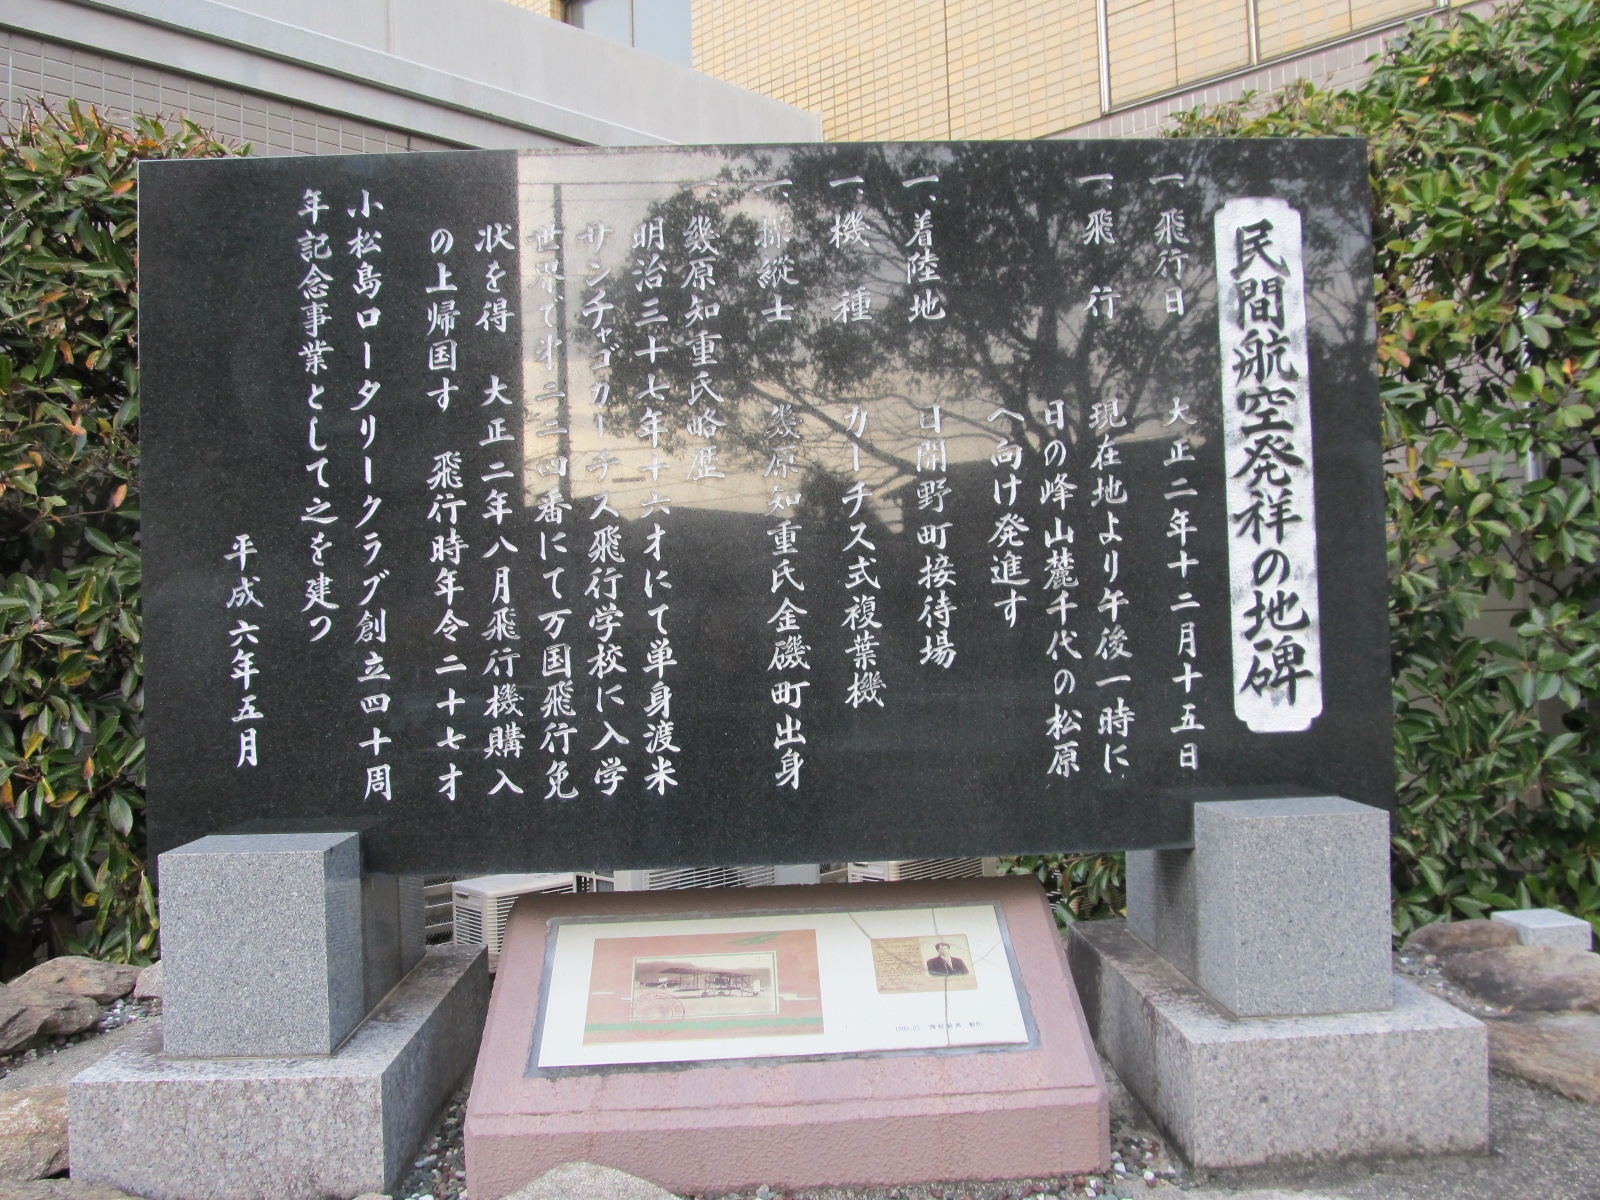 民間航空発祥の地碑
一、飛行日　大正二年十二月十五日
一、飛　行　現在地より午後一時に
日の峰山麓千代の松原
へ向け発進す
一、着陸地　日開野町接待場
一、機　種　カーチス式複葉機
一、操縦士　幾原知重氏金磯町出身
幾原知重氏略歴
明治三十七年十六才にて単身渡米
サンチャゴカーチス飛行学校に入学
世界で才二二四番にて万国飛行免
状を得　大正二年八月飛行機購入
の上帰国す　飛行時年令二十七才
小松島ロータリークラブ創立四十周
年記念事業として之を建つ
平成六年五月